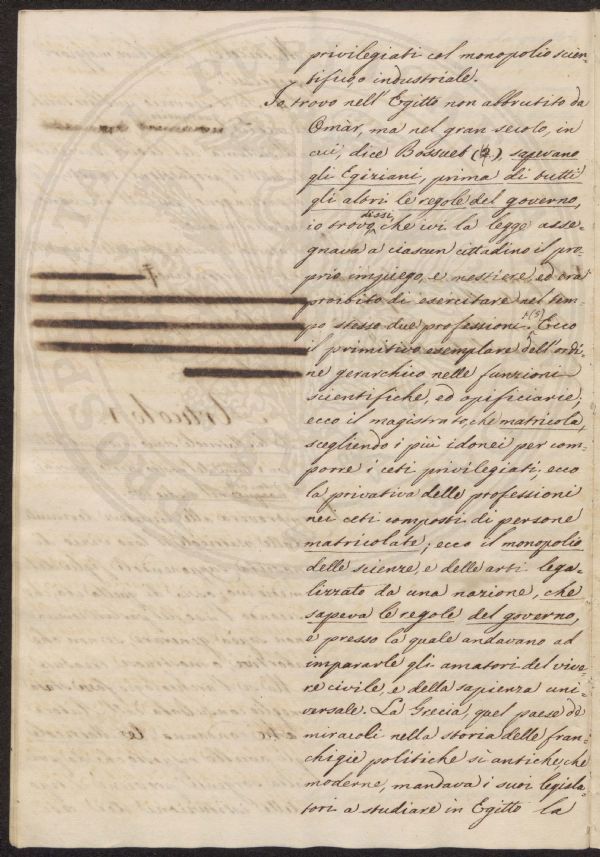 privilegiati col monopolio scien-
tifico, industriale.
Io trovo nell' Egitto non abbrutito da
Omar, ma nel gran secolo, in
cui, dice Bossuet (2), sapevano
gli Egiziani, prima di tutti
gli altri le regole del governo,
io trovo, dissi, che ivi la legge asse-
gnava a ciascun cittadino il pro-
prio impiego, e mestiere, ed era
proibito di esercitare nel tem-
po stesso due professioni. (3) Ecco
il primitivo esemplare dell'ordi-
ne gerarchico nelle funzioni
scientifiche, ed opificiarie;
ecco il magistrato, che matricola,
scegliendo i più idonei per com-
porre i ceti privilegiati; ecco
la privativa delle professioni
nei ceti composti di persone
matricolate; ecco il monopolio
delle scienze, e delle arti lega-
lizzato da una nazione, che
sapeva le regole del governo,
e presso la quale andavano ad
impararle gli amatori del vive-
re civile, e della sapienza uni-
versale. La Grecia, quel paese di
miracoli nella storia delle fran-
chigie politiche sì antiche, che
moderne, mandava i suoi legisla-
tori a studiare in Egitto la